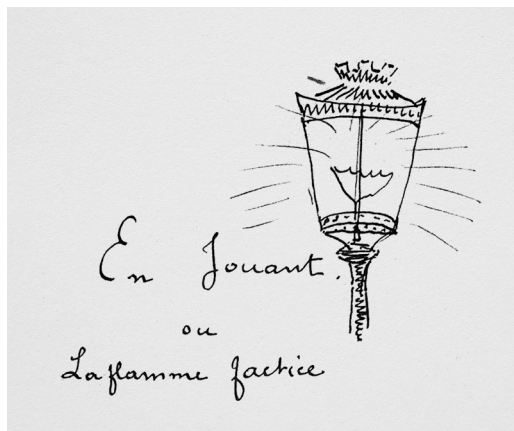 En Jouant.
ou
La flamme factice